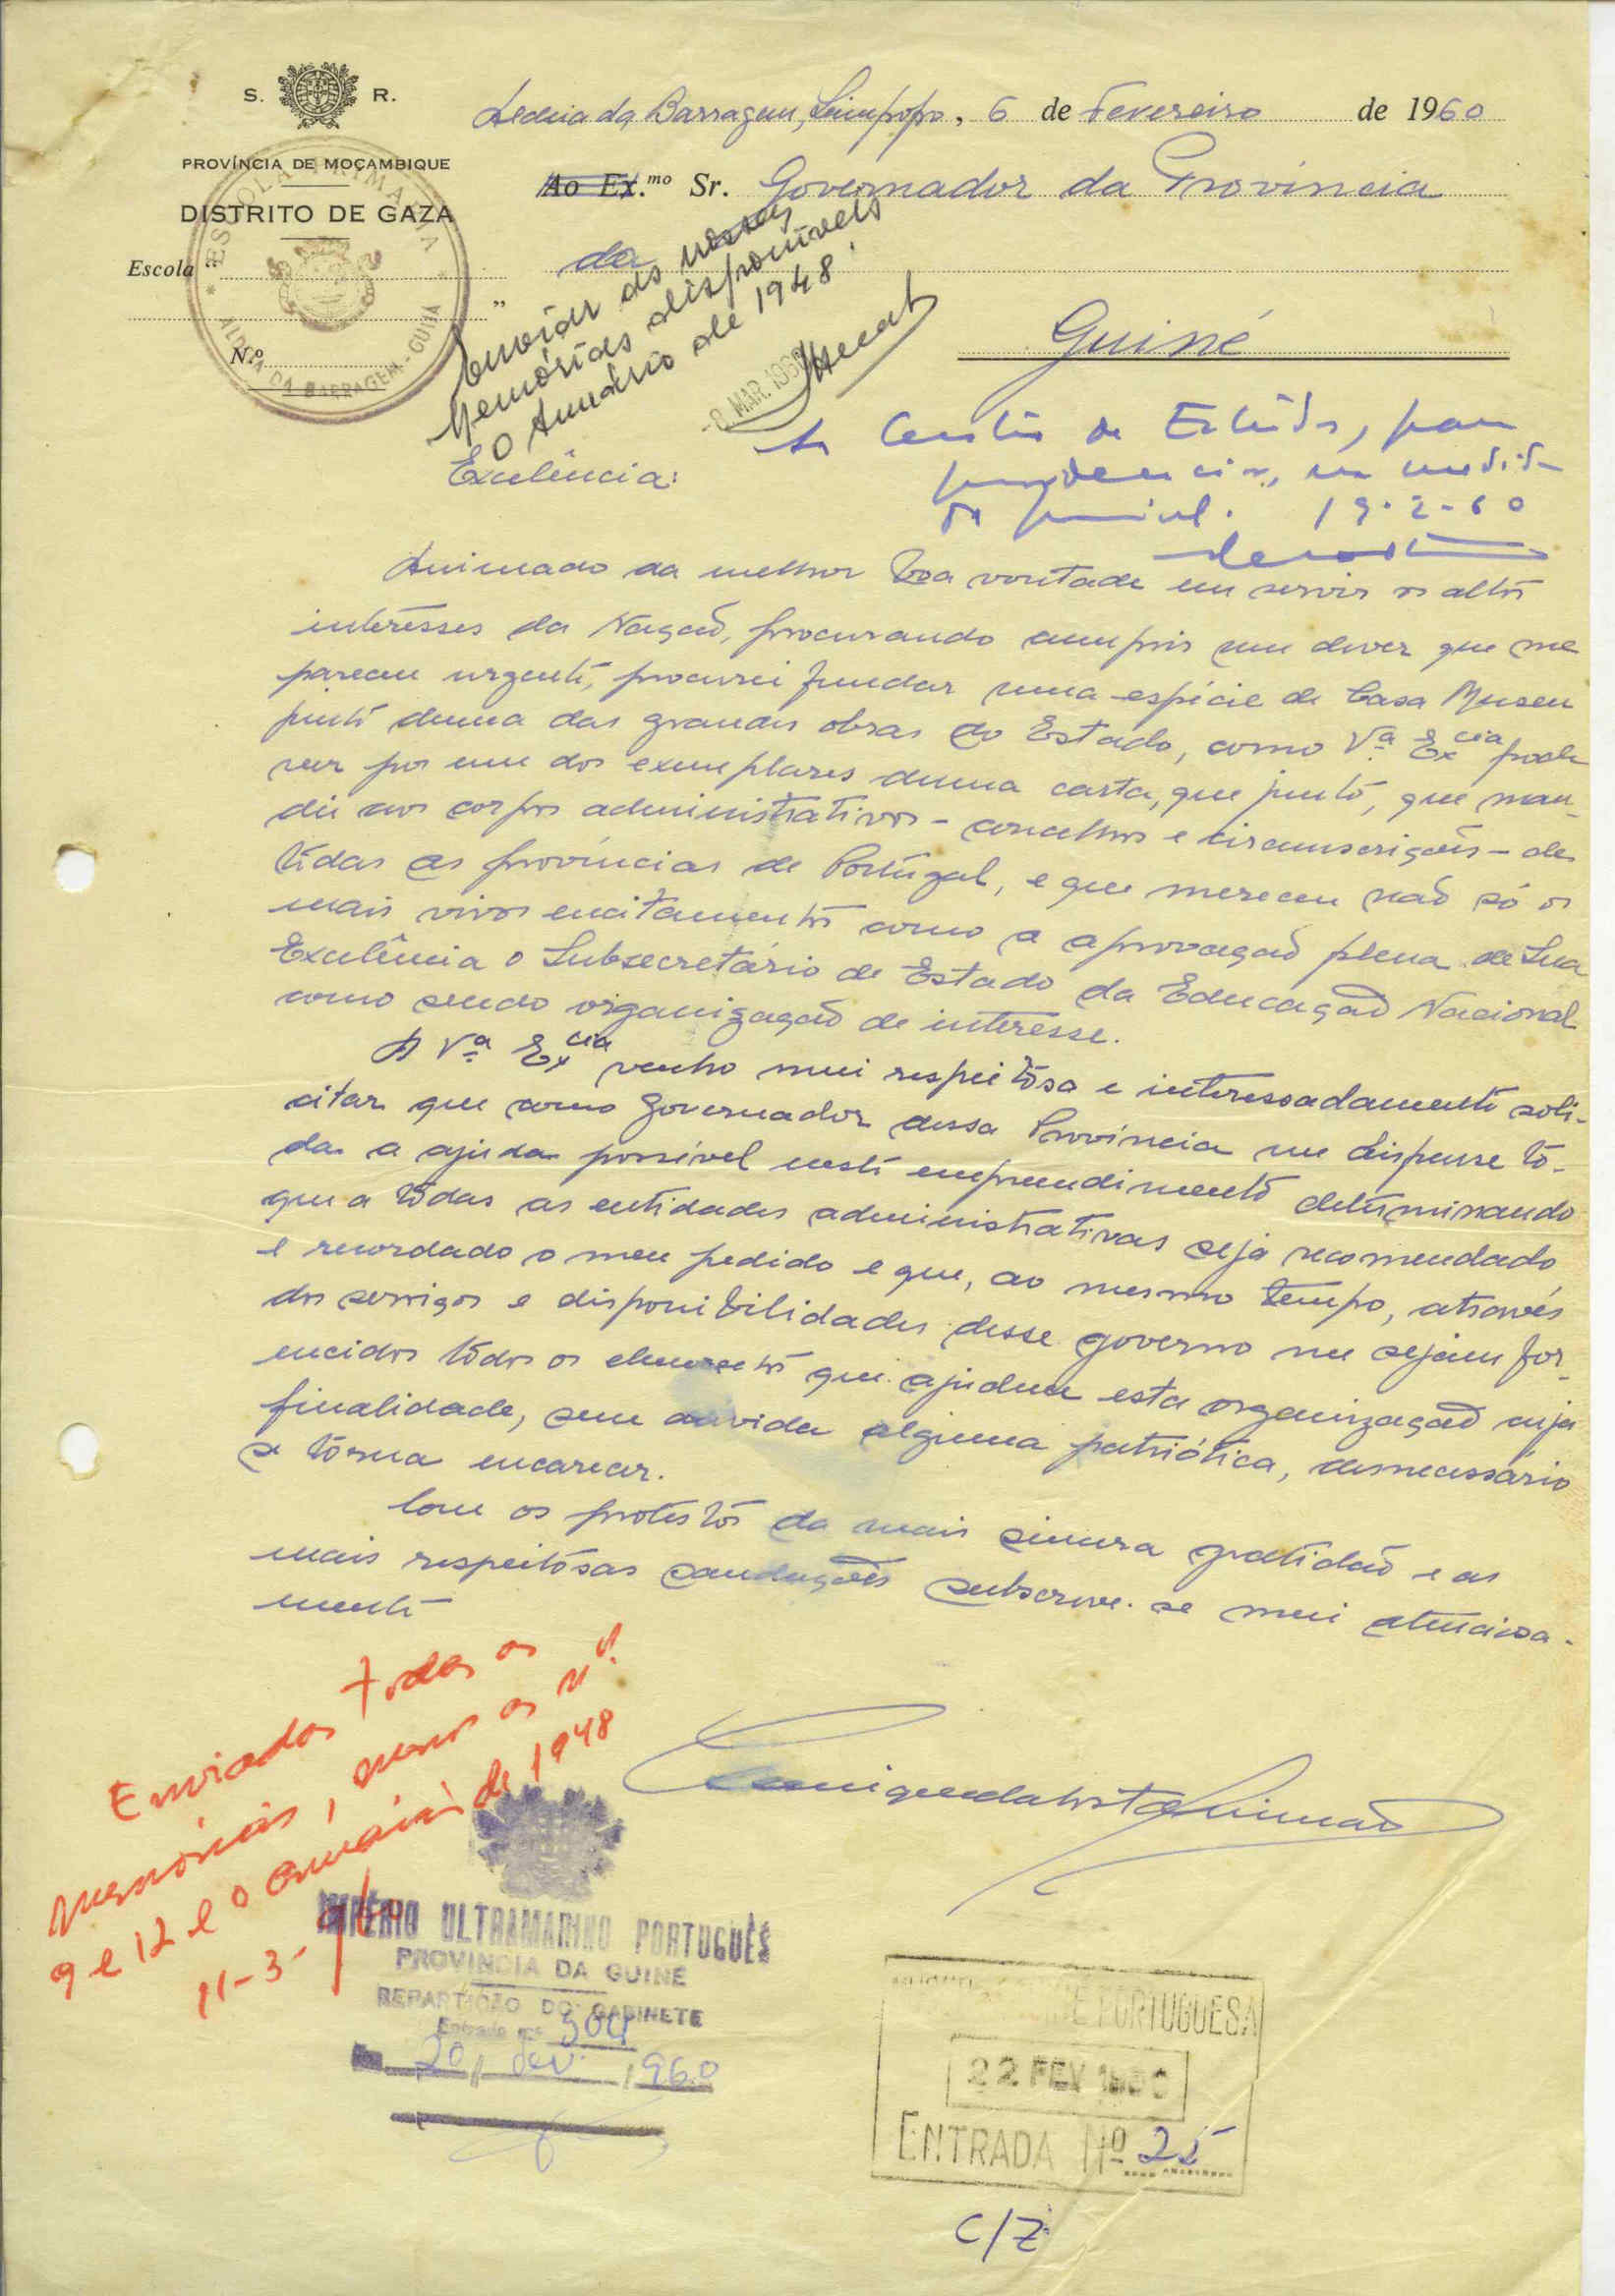 S. R.
PROVÍNCIA DE MOÇAMBIQUE
DISTRITO DE GAZA
Escola "
"
N.º
* ESCOLA PRIMÁRIA *
ALDEIA DA BARRAGEM - GUIJÁ
Aldeia da Barragem, Limpopo, 6 de Fevereiro de 1960
Ao Ex.mo Sr. Governador da Província
da
Guiné
Enviar as nossas
Memórias disponíveis
O Anuário de 1948
-8 MAR. 1960
Ao Centro de Estudos, para
providenciar, na medida
do possível. 19-2-60
Excelência:
Animado da melhor boa vontade em servir os altos
interêsses da Nação, procurando cumprir um dever que me
pareceu urgente, procurei fundar uma espécie de Casa Museu
junto duma das grandes obras do Estado, como Vª Excia pode
ver por um dos exemplares duma carta, que junto, que man-
dei aos corpos administrativos - concelhos e circunscrições - de
tôdas as províncias de Portugal, e que mereceu não só os
mais vivos incitamentos como a aprovação plena de Sua
Excelência o Subsecretário de Estado da Educação Nacional
como sendo organização de interêsse.
A Vª Excia venho mui respeitosa e interessadamente soli-
citar que como Governador dessa Província me dispense tô-
da a ajuda possível neste empreendimento determinando
que a tôdas as entidades administrativas seja recomendado
e recordado o meu pedido e que, ao mesmo tempo, através
dos serviços e disponibilidades desse governo me sejam for-
necidos todos os elementos que ajudem esta organização cuja
finalidade, sem dúvida alguma patriótica, desnecessário
se tôrna encarecer.
Com os protestos da mais sincera gratidão e as
mais respeitosas saudações subscreve-se mui atenciosa-
mente
Enviados todas as
memórias, menos os nºs
9 e 12 e o anuário de 1948
11-3-
IMPÉRIO ULTRAMARINO PORTUGUÊS
PROVINCIA DA GUINÉ
REPARTIÇÃO DO GABINETE
Entrada nº 504
20 / Fev. / 1960
GUINÉ PORTUGUESA
22 FEV 1960
ENTRADA Nº 25
C/Z